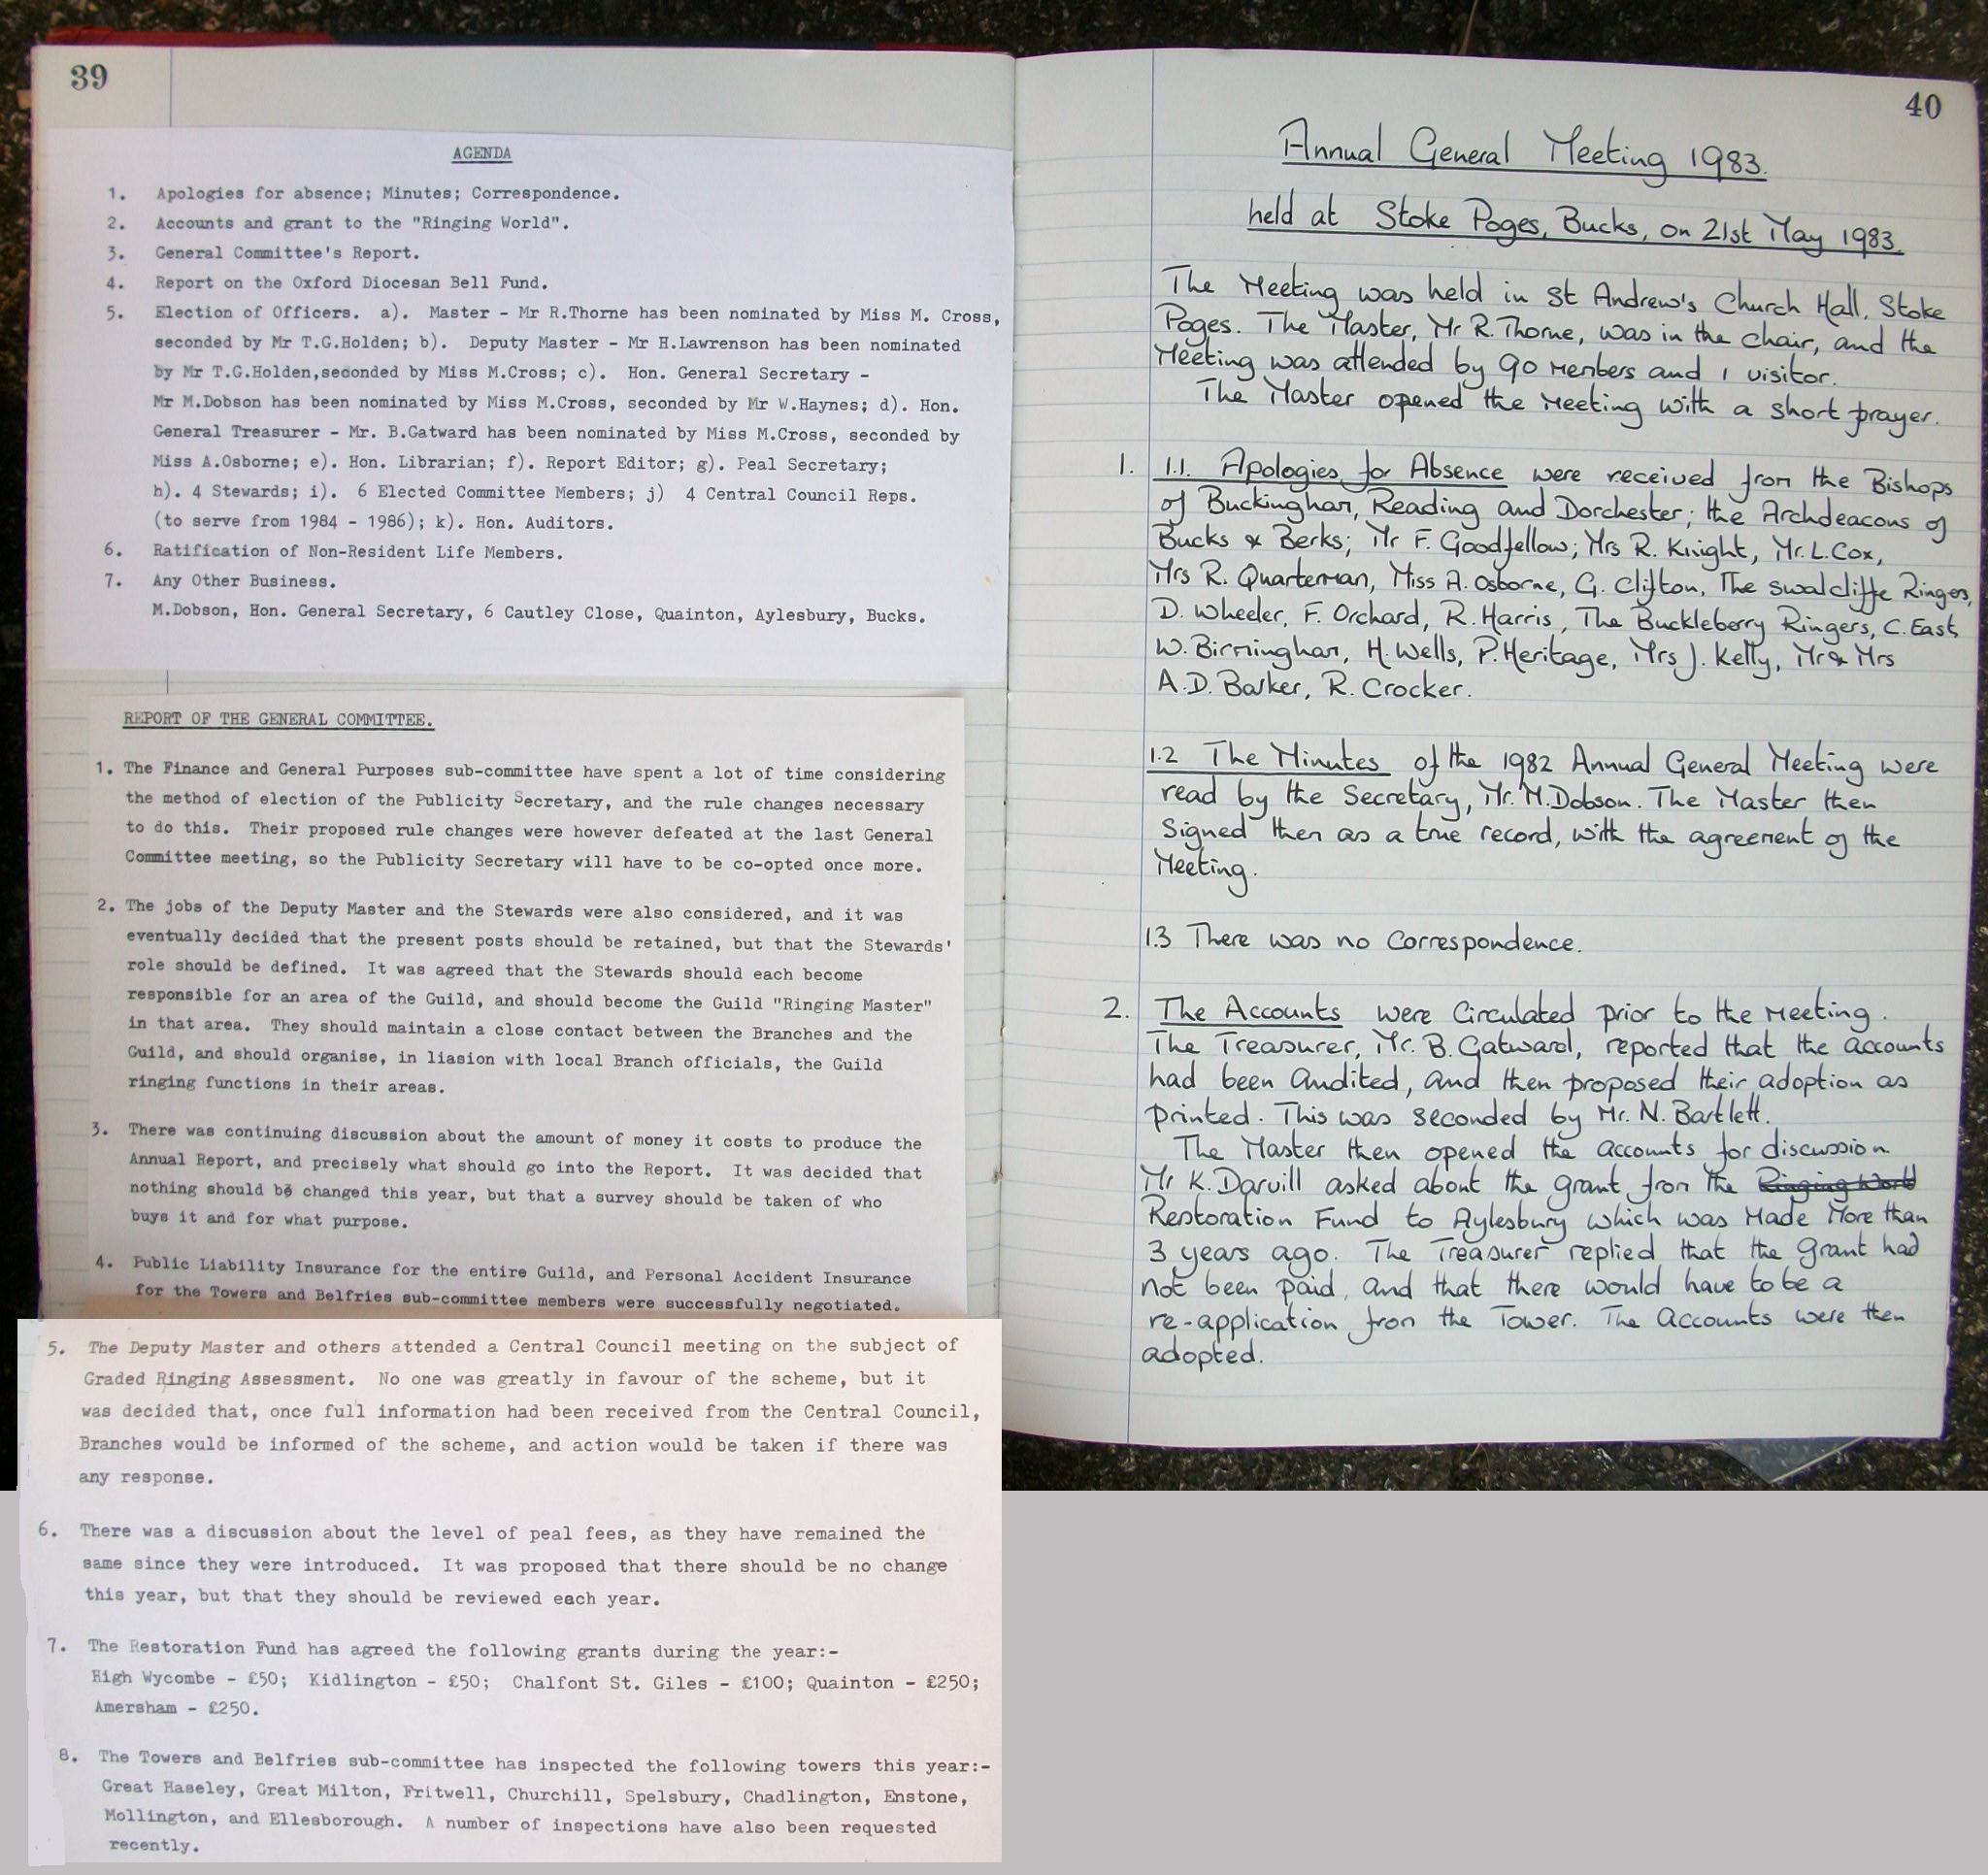 39
AGENDA
1. Apologies for absence; Minutes; Correspondence.
2. Accounts and grant to the "Ringing World".
3. General Committee's Report.
4. Report on the Oxford Diocesan Bell Fund.
5. Election of Officers. a). Master - Mr R.Thorne has been nominated by Miss M. Cross,
seconded by Mr T.G.Holden; b). Deputy Master - Mr H.Lawrenson has been nominated
by Mr T.G.Holden,seconded by Miss M.Cross; c). Hon. General Secretary -
Mr M.Dobson has been nominated by Miss M.Cross, seconded by Mr W.Haynes; d). Hon.
General Treasurer - Mr. B.Gatward has been nominated by Miss M.Cross, seconded by
Miss A.Osborne; e). Hon. Librarian; f). Report Editor; g). Peal Secretary;
h). 4 Stewards; i). 6 Elected Committee Members; j) 4 Central Council Reps.
(to serve from 1984 - 1986); k). Hon. Auditors.
6. Ratification of Non-Resident Life Members.
7. Any Other Business.
M.Dobson, Hon. General Secretary, 6 Cautley Close, Quainton, Aylesbury, Bucks.
REPORT OF THE GENERAL COMMITTEE.
1. The Finance and General Purposes sub-committee have spent a lot of time considering
the method of election of the Publicity Secretary, and the rule changes necessary
to do this. Their proposed rule changes were however defeated at the last General
Committee meeting, so the Publicity Secretary will have to be co-opted once more.
2. The jobs of the Deputy Master and the Stewards were also considered, and it was
eventually decided that the present posts should be retained, but that the Stewards'
role should be defined. It was agreed that the Stewards should each become
responsible for an area of the Guild, and should become the Guild "Ringing Master"
in that area. They should maintain a close contact between the Branches and the
Guild, and should organise, in liasion with local Branch officials, the Guild
ringing functions in their areas.
3. There was continuing discussion about the amount of money it costs to produce the
Annual Report, and precisely what should go into the Report. It was decided that
nothing should be changed this year, but that a survey should be taken of who
buys it and for what purpose.
4. Public Liability Insurance for the entire Guild, and Personal Accident Insurance
for the Towers and Belfries sub-committee members were successfully negotiated.
5. The Deputy Master and others attended a Central Council meeting on the subject of
Graded Ringing Assessment. No one was greatly in favour of the scheme, but it
was decided that, once full information had been received from the Central Council,
Branches would be informed of the scheme, and action would be taken if there was
any response.
6. There was a discussion about the level of peal fees, as they have remained the
same since they were introduced. It was proposed that there should be no change
this year, but that they should be reviewed each year.
7. The Restoration Fund has agreed the following grants during the year:-
High Wycombe - £50; Kidlington - £50; Chalfont St. Giles - £100; Quainton - £250;
Amersham - £250.
8. The Towers and Belfries sub-committee has inspected the following towers this year:-
Great Haseley, Great Milton, Fritwell, Churchill, Spelsbury, Chadlington, Enstone,
Mollington, and Ellesborough. A number of inspections have also been requested
recently.
40
Annual General Meeting 1983.
held at Stoke Poges, Bucks, on 21st May 1983.
The Meeting was held in St Andrew's Church Hall, Stoke
Poges. The Master, Mr R.Thorne, was in the chair, and the
Meeting was attended by 90 members and 1 visitor.
The Master opened the Meeting with a short prayer.
1. 1.1. Apologies for Absence were received from the Bishops
of Buckingham, Reading and Dorchester; the Archdeacons of
Bucks & Berks; Mr F. Goodfellow; Mrs R. Knight, Mr. L.Cox,
Mrs R. Quarterman, Miss A. Osborne, G. Clifton, The Swalcliffe Ringers,
D. Wheeler, F. Orchard, R. Harris, The Buckleberry Ringers, C. East,
W. Birmingham, H. Wells, P. Heritage, Mrs J. Kelly, Mr & Mrs
A.D. Barker, R. Crocker.
1.2 The Minutes of the 1982 Annual General Meeting were
read by the Secretary, Mr. M.Dobson. The Master then
signed them as a true record, with the agreement of the
Meeting.
1.3 There was no Correspondence.
2. The Accounts were Circulated prior to the Meeting.
The Treasurer, Mr. B. Gatward, reported that the accounts
had been audited, and then proposed their adoption as
printed. This was seconded by Mr. N. Bartlett.
The Master then opened the accounts for discussion
Mr K. Darvill asked about the grant from the Ringing World
Restoration Fund to Aylesbury which was made more than
3 years ago. The Treasurer replied that the grant had
not been paid, and that there would have to be a
re-application from the Tower. The Accounts were then
adopted.